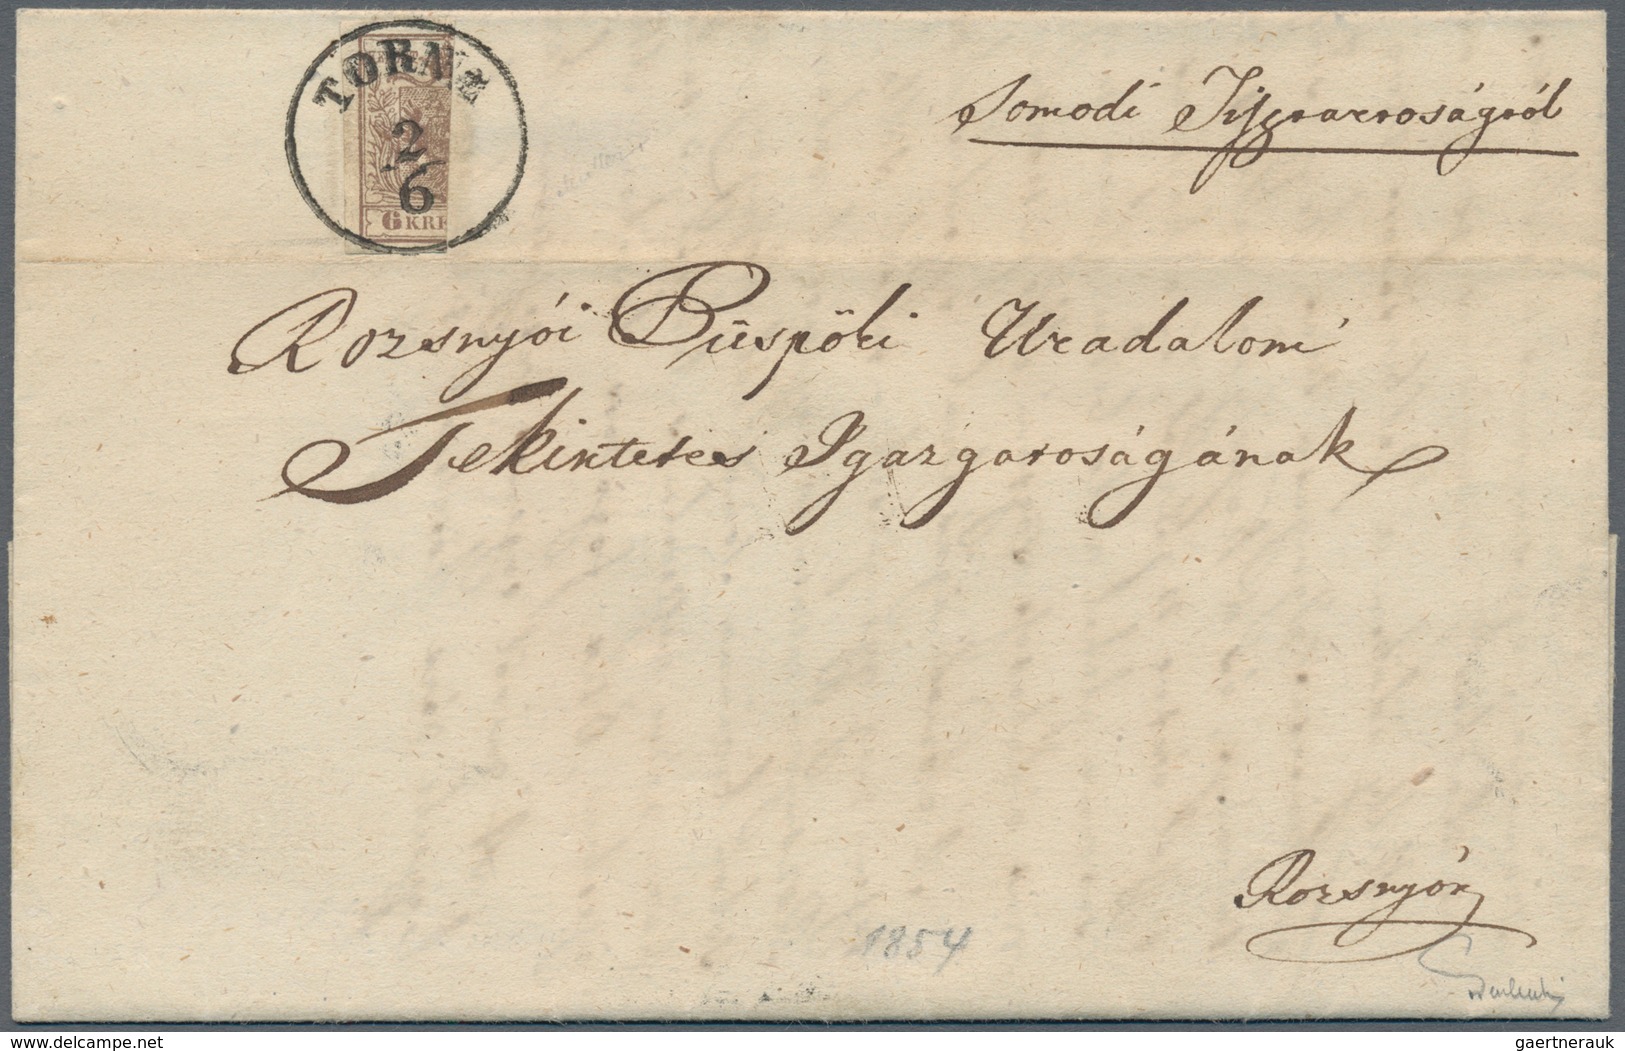 TORNA
2
6
6 KRE
Somodi Tisztartoságtól
Rozsnyói Püspöki Uradalomi
Tekintetes Igazgatoságának
Rozsnyón
1854
www.delcampe.net
gaertnerauk